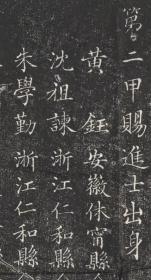 第二甲賜進士出身
黄鈺安徽休寧縣
沈祖諫浙江仁和縣
朱學勤浙江仁和縣